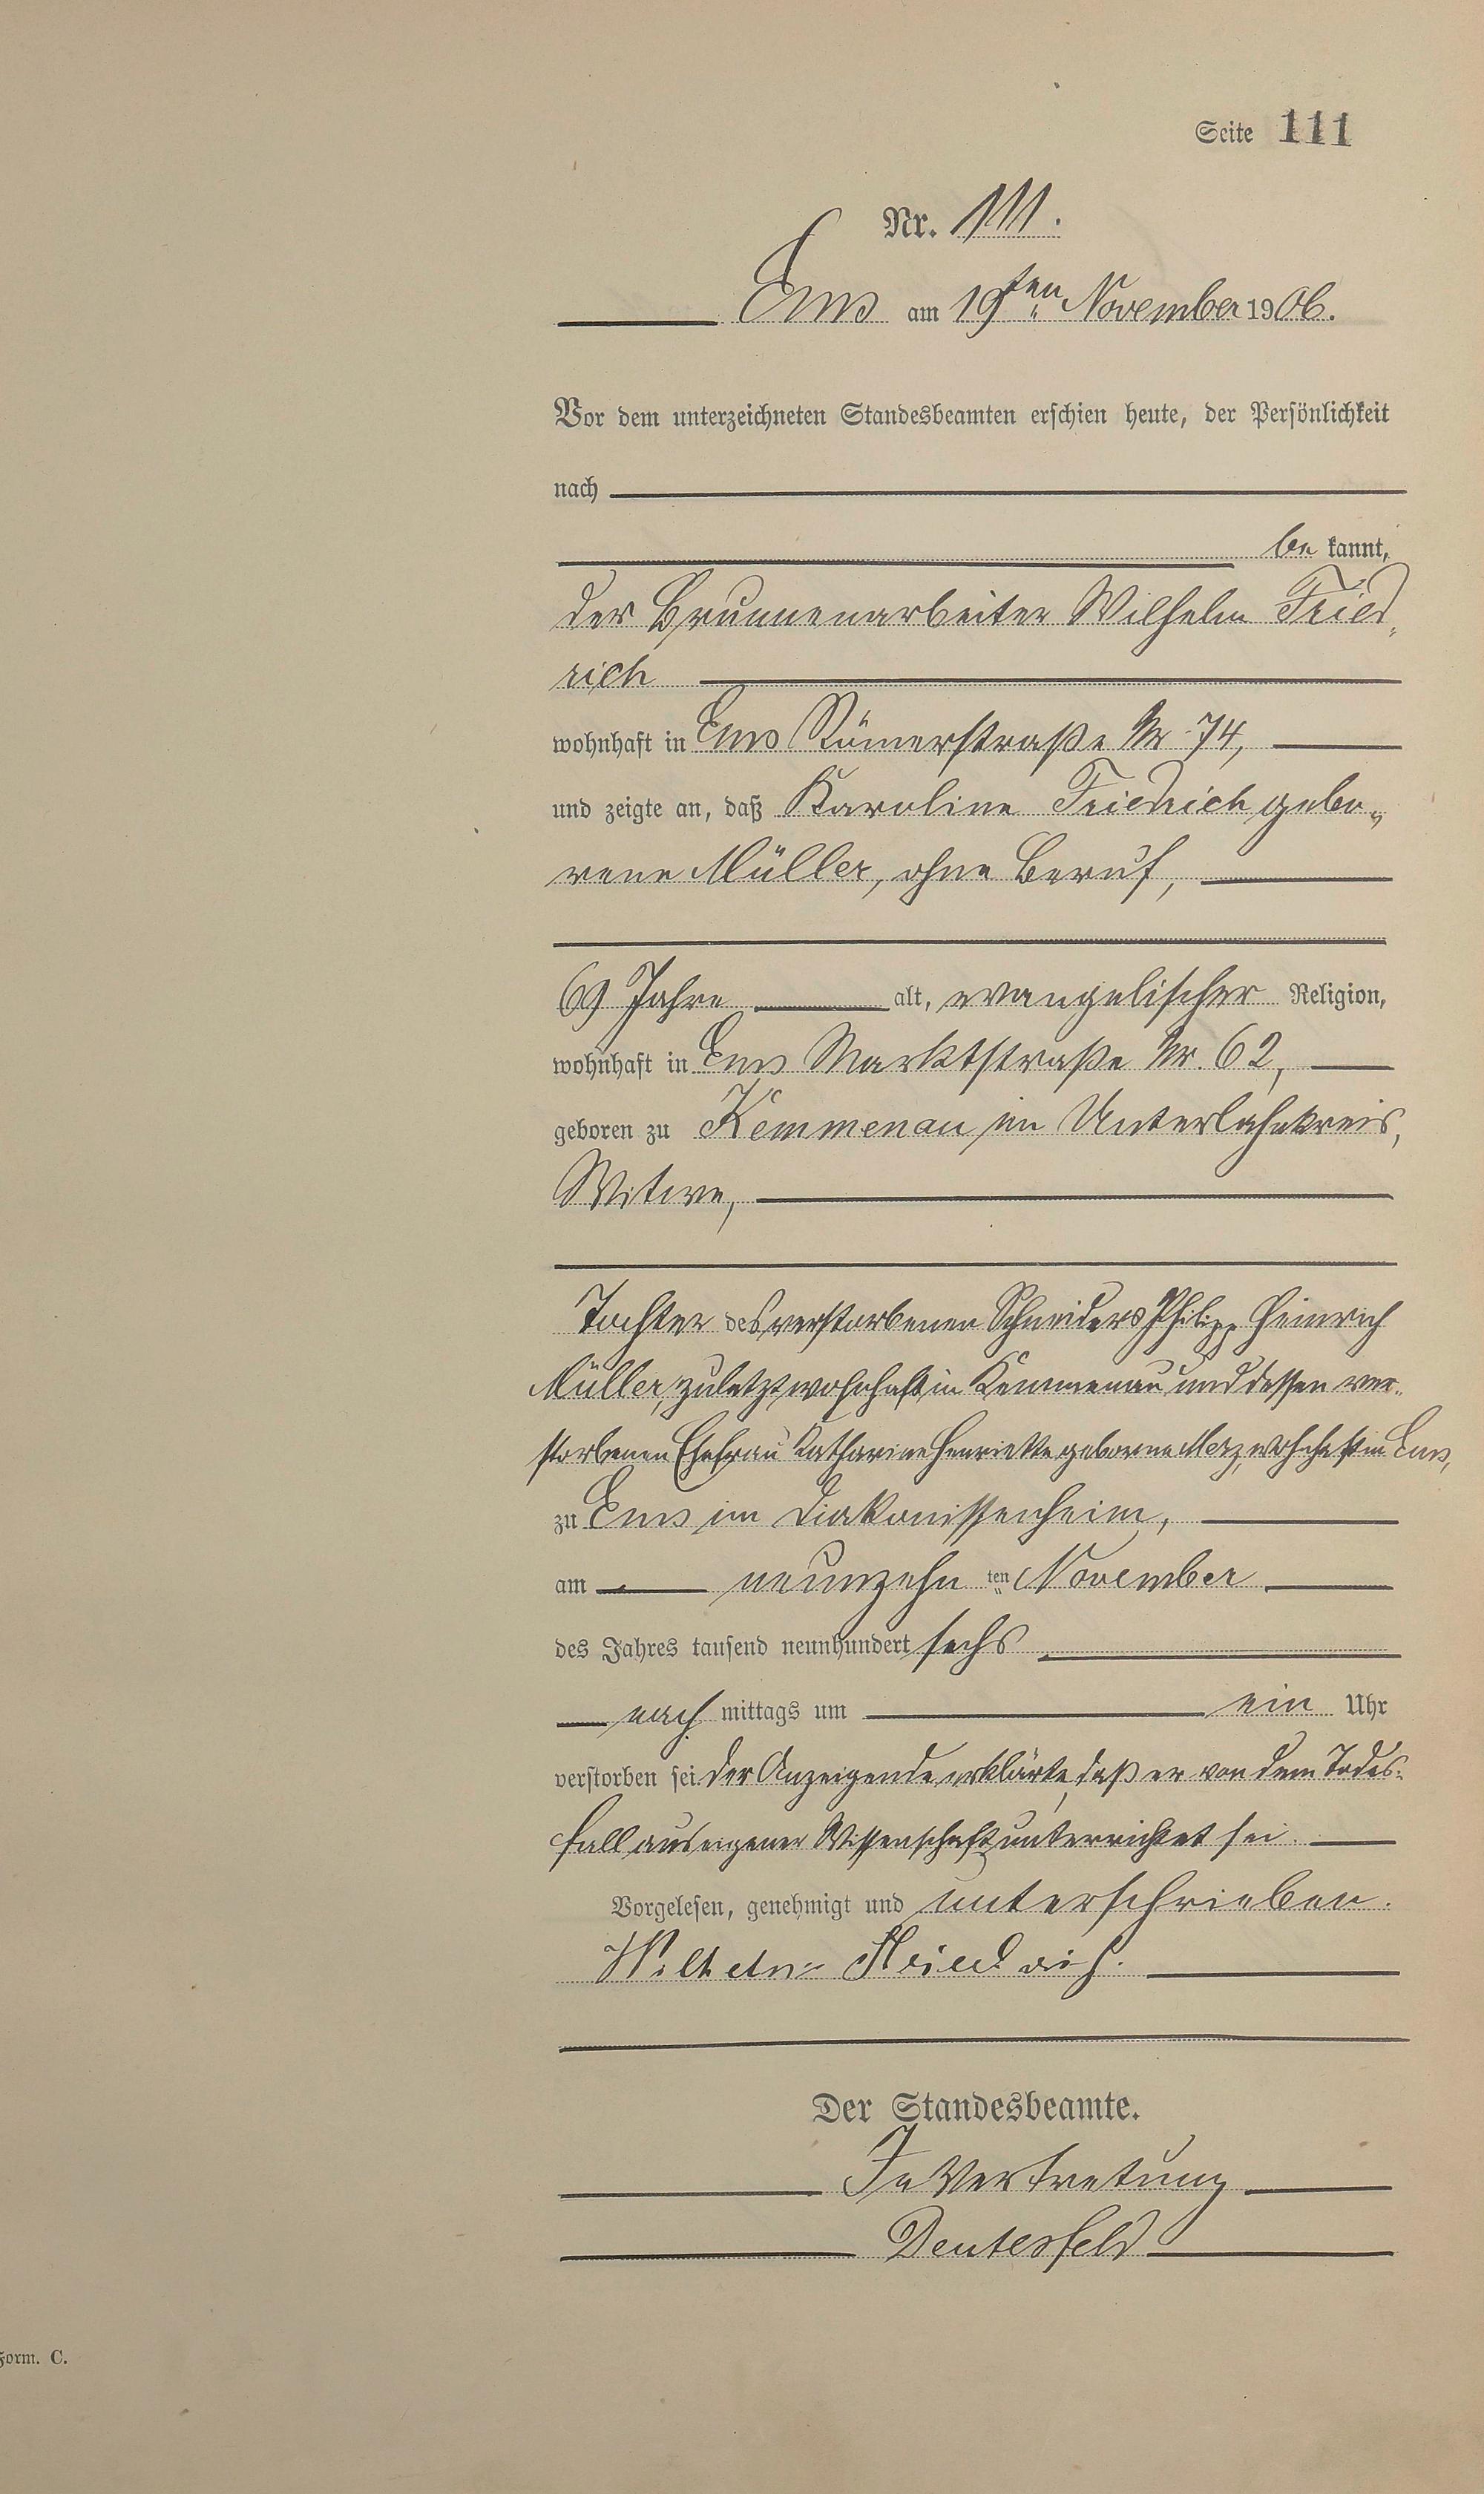 Seite 111
Nr. 111.
Ems am 19ten November 1906.
Vor dem unterzeichneten Standesbeamten erschien heute, der Persönlichkeit
nach
be kannt,
der Brunnenarbeiter Wilhelm Fried-
rich
wohnhaft in Ems Römerstraße Nr. 74,
und zeigte an, daß Karoline Friedrich gebo-
rene Müller, ohne Beruf,
69 Jahre alt, evangelischer Religion,
wohnhaft in Ems Marktstraße Nr. 62,
geboren zu Kemmenau im Unterlahnkreis,
Witwe,
Tochter des verstorbenen Schneiders Philipp Heinrich
Müller, zuletzt wohnhaft in Kemmenau und dessen ver-
storbenen Ehefrau Katharine Henriette geborene Merz, wohnhaft in Ems,
zu Ems im Diakonissenheim,
am neunzehn ten November
des Jahres tausend neunhundert sechs
nach mittags um ein Uhr
verstorben sei. Der Anzeigende erklärte, daß er von dem Todes-
fall aus eigener Wissenschaft unterrichtet sei.
Vorgelesen, genehmigt und unterschrieben.
Wilhelm Friedrich.
Der Standesbeamte.
In Vertretung
Deutesfeld
Form. C.